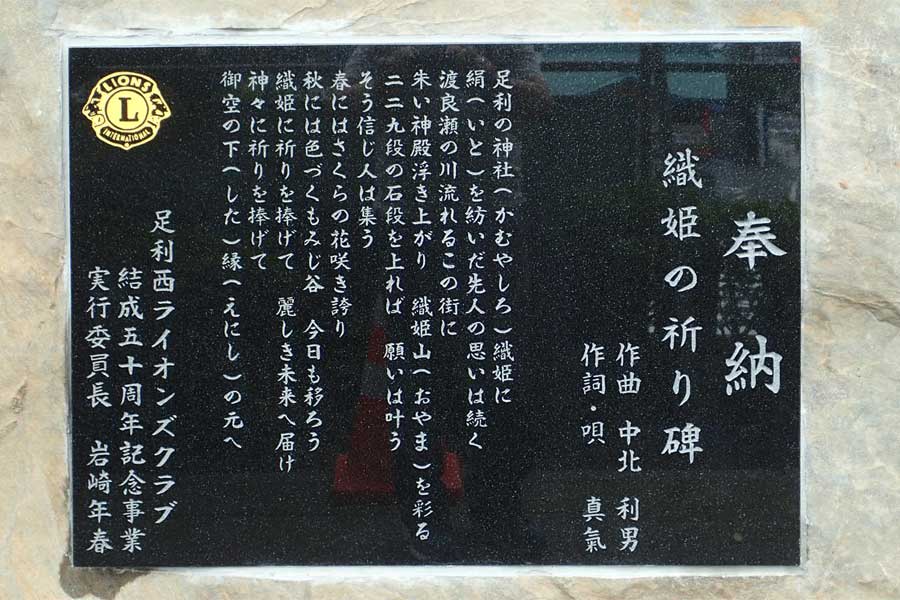 奉納
織姫の祈り碑
作曲 中北 利男
作詞・唄 真氣
足利の神社(かむやしろ)織姫に
絹(いと)を紡いだ先人の思いは続く
渡良瀬の川流れるこの街に
朱い神殿浮き上がり 織姫山(おやま)を彩る
二二九段の石段を上れば 願いは叶う
そう信じ人は集う
春にはさくらの花咲き誇り
秋には色づくもみじ谷 今日も移ろう
織姫に祈りを捧げて 麗しき未来へ届け
神々に祈りを捧げて
御空の下(した)縁(えにし)の元へ
足利西ライオンズクラブ
結成五十周年記念事業
実行委員長 岩崎年春
LIONS
L
INTERNATIONAL